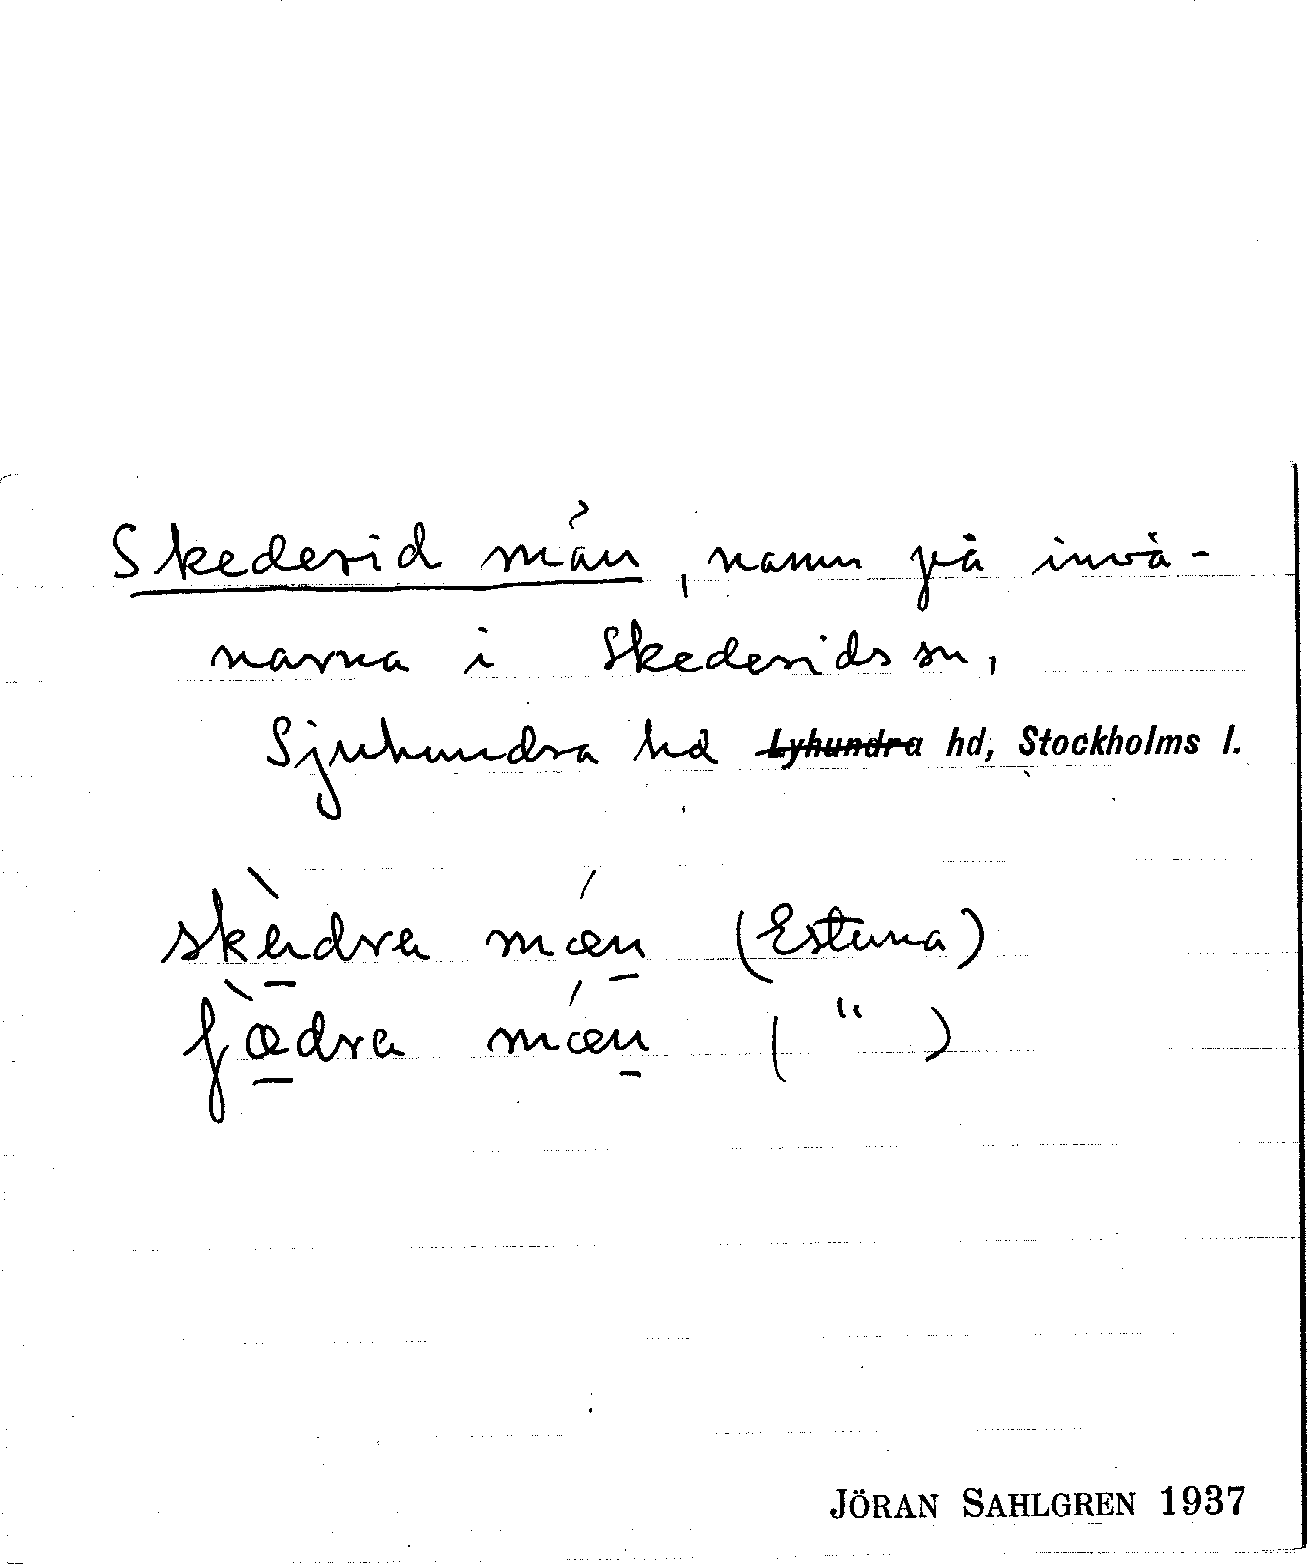 Skederid män, namn på invå-
narna i Skederids sn,
Sjuhundra hd Lyhundra hd, Stockholms l.
skèdra mǽn (Estuna)
fæ̀dra mǽn ( " )
JÖRAN SAHLGREN 1937